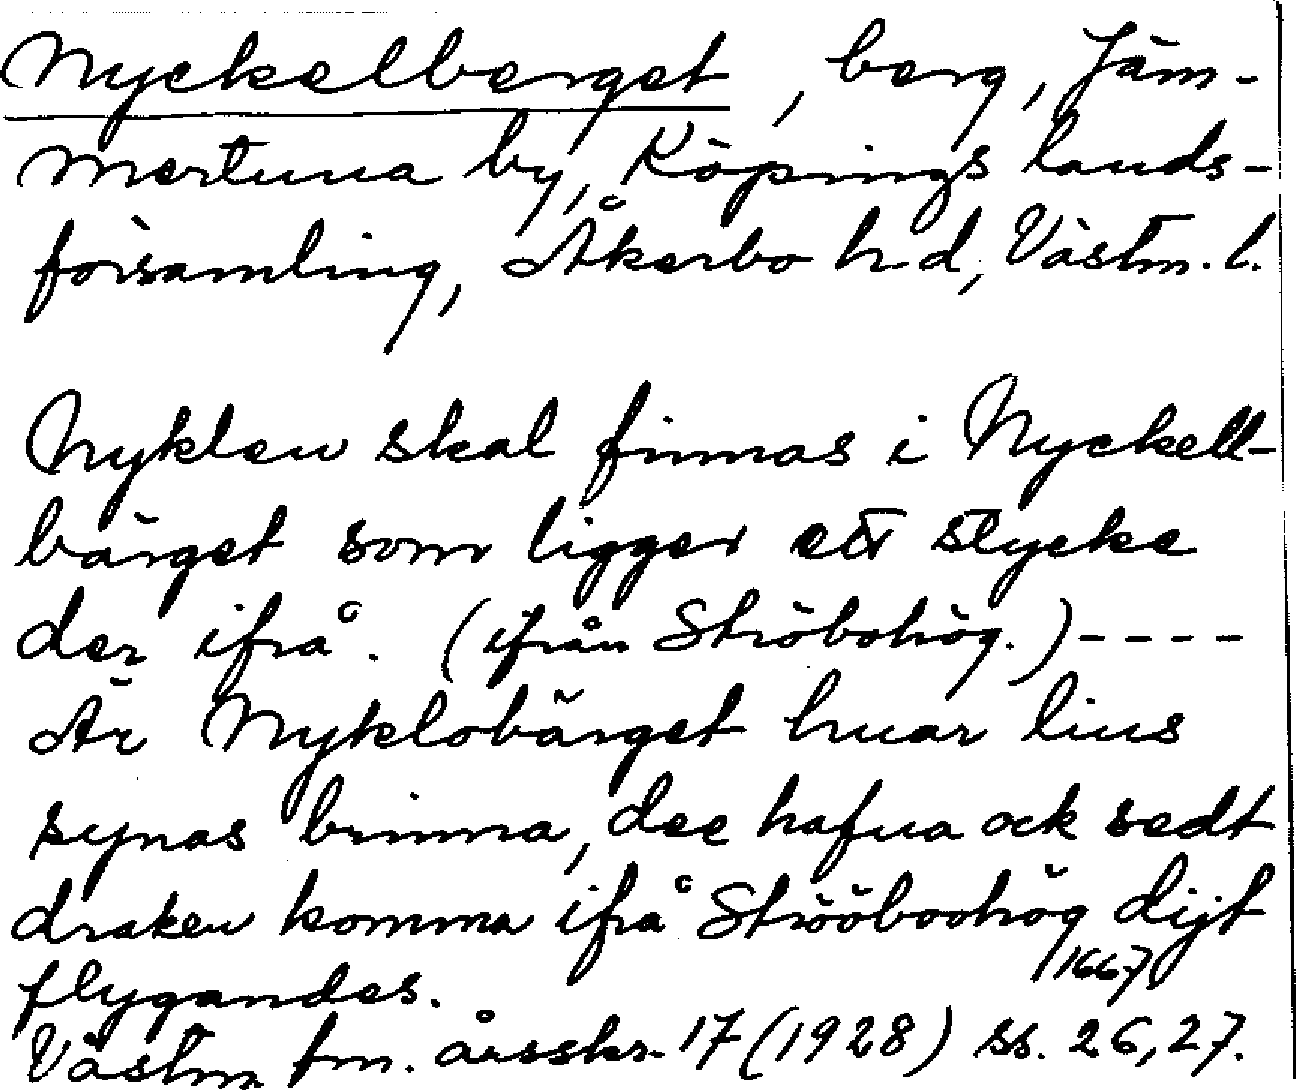 Nyckelberget, berg, Jäm-
mertuna by, Köpings lands-
församling, Åkerbo hd, Västm. l.
Nyklen skal finnas i Nyckell-
bärget som ligger ett stycke
der ifrå. (ifrån Ströbohög.) ----
Är Nyklobärget huar lius
synas brinna, dee hafua ock sedt
draken komma ifrå Strööboohög dijt
flygandes. /1667/
Västm fm. årsskr. 17 (1928) ss. 26, 27.